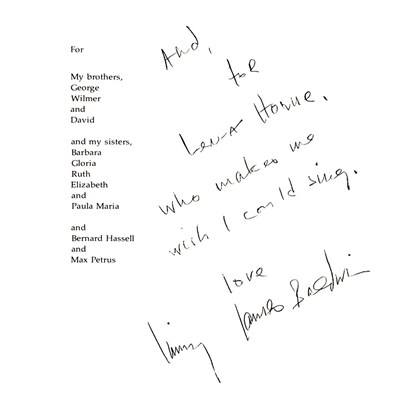 For
My brothers,
George
Wilmer
and
David
and my sisters,
Barbara
Gloria
Ruth
Elizabeth
and
Paula Maria
and
Bernard Hassell
and
Max Petrus
And,
for
Lena Horne.
who makes me
wish I could sing.
love
Jimmy James Baldwin